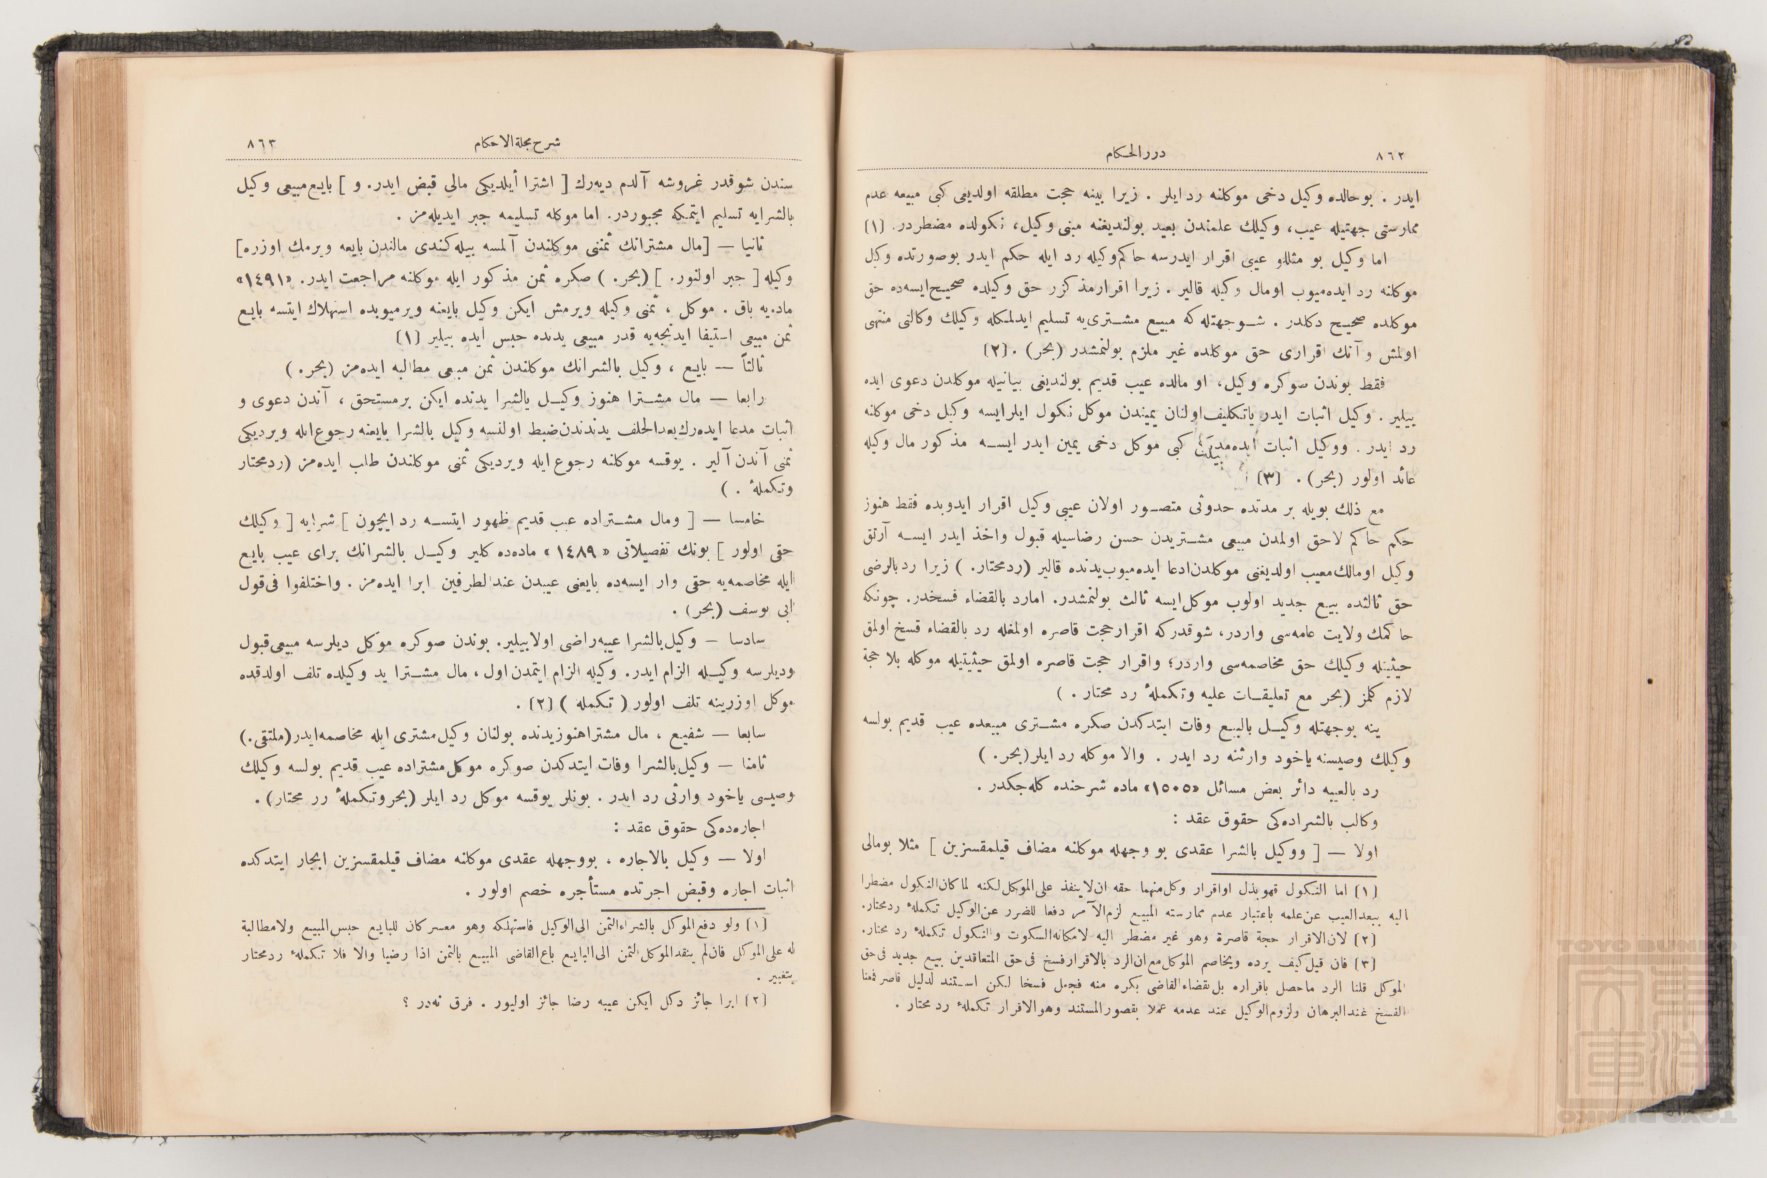 ٨٦٢
درر الحكام
ايدر . بو حالده وكيل دخى موكلنه رد ايلر . زيرا بينه حجت مطلقه اولديغى كبى مبيعه عدم
ممارستى جهتيله عيب، وكيلك علمندن بعيد بولنديغنه مبنى وكيل، نكولده مضطردر. [١]
اما وكيل بو مثللو عيبى اقرار ايدرسه حاكم وكيله رد ايله حكم ايدر بو صورتده وكيل
موكلنه رد ايده‌ميوب اومال وكيله قالير . زيرا اقرار مذكور حق وكيلده صحيح ايسه‌ده حق
موكلده صحيح دكلدر . شو جهتله كه مبيع مشترى‌يه تسليم ايدلمكله وكيلك وكالتى منتهى
اولمش و آنك اقرارى حق موكلده غير ملزم بولنمشدر (بحر) . [٢]
فقط بوندن صوكره وكيل، او مالده عيب قديم بولنديغى بيانيله موكلدن دعوى ايده
بيلير . وكيل اثبات ايدر ياتكليف اولنان يميندن موكل نكول ايلرايسه وكيل دخى موكلنه
رد ايدر . ووكيل اثبات ايده‌مديكى كبى موكل دخى يمين ايدر ايسه مذكور مال وكيله
عائد اولور (بحر) . [٣]
مع ذلك بويله بر مدتده حدوثى متصور اولان عيبى وكيل اقرار ايدوبده فقط هنوز
حكم حاكم لاحق اولمدن مبيعى مشتريدن حسن رضاسيله قبول واخذ ايدر ايسه آرتق
وكيل اومالك معيب اولديغنى موكلدن ادعا ايده‌ميوب يدنده قالير (ردمحتار. ) زيرا رد بالرضى
حق ثالثده بيع جديد اولوب موكل ايسه ثالث بولنمشدر. امارد بالقضاء فسخدر. چونكه
حاكمك ولايت عامه‌سى واردر، شوقدركه اقرار حجت قاصره اولمغله رد بالقضاء فسخ اولمق
حيثيتله وكيلك حق مخاصمه‌سى واردر؛ واقرار حجت قاصره اولمق حيثيتيله موكله بلا حجة
لازم كلمز (بحر مع تعليقات عليه وتكملهٔ رد محتار . )
ينه بوجهتله وكيل بالبيع وفات ايتدكدن صكره مشترى مبيعده عيب قديم بولسه
وكيلك وصيسنه ياخود وارثنه رد ايدر . والا موكله رد ايلر (بحر. )
رد بالعيبه دائر بعض مسائل «١٥٠٥» ماده شرحنده كله‌جكدر .
وكالت بالشراده‌كى حقوق عقد :
اولا — [ ووكيل بالشرا عقدى بو وجهله موكلنه مضاف قيلمقسزين ] مثلا بومالى
[١] اما النكول فهو بذل او اقرار وكل منهما حقه ان لا ينفذ على الموكل لكنه لما كان النكول مضطرا
اليه ببعد العيب عن علمه باعتبار عدم ممارسته المبيع لزم الآمر دفعا للضرر عن الوكيل تكملهٔ ردمحتار.
[٢] لان الاقرار حجة قاصرة وهو غير مضطر اليه لامكانه السكوت والنكول تكملهٔ رد محتار.
[٣] فان قيل كيف يرده ويخاصم الموكل مع ان الرد بالاقرار فسخ فى حق المتعاقدين بيع جديد فى حق
الموكل قلنا الرد ماحصل باقراره بل بقضاء القاضى بكره منه فجعل فسخا لكن استند لدليل قاصر فعملنا
الفسخ عند البرهان ولزوم الوكيل عند عدمه عملا بقصور المستند وهو الاقرار تكملهٔ رد محتار .
شرح مجلة الاحكام
٨٦٣
سندن شوقدر غروشه آلدم ديه‌رك [ اشترا ايلديكى مالى قبض ايدر. و ] بايع مبيعى وكيل
بالشرايه تسليم ايتمكه مجبوردر. اما موكله تسليمه جبر ايديله‌مز .
ثانيا — [مال مشترانك ثمننى موكلندن آلمسه بيله كندى مالندن بايعه ويرمك اوزره]
وكيله [ جبر اولنور. ] (بحر. ) صكره ثمن مذكور ايله موكلنه مراجعت ايدر. «١٤٩١»
ماده‌يه باق . موكل ، ثمنى وكيله ويرمش ايكن وكيل بايعنه ويرميوبده استهلاك ايتسه بايع
ثمن مبيعى استيفا ايدنجه‌يه قدر مبيعى يدنده حبس ايده بيلير [١]
ثالثاً — بايع ، وكيل بالشرانك موكلندن ثمن مبيعى مطالبه ايده‌مز (بحر. )
رابعا — مال مشترا هنوز وكيل بالشرا يدنده ايكن برمستحق ، آندن دعوى و
اثبات مدعا ايده‌رك بعدالحلف يدندن ضبط اولنسه وكيل بالشرا بايعنه رجوع ايله ويرديكى
ثمنى آندن آلير . يوقسه موكلنه رجوع ايله ويرديكى ثمنى موكلندن طلب ايده‌مز (ردمحتار
وتكملهٔ . )
خامسا — [ ومال مشتراده عيب قديم ظهور ايتسه رد ايچون ] شرايه [ وكيلك
حقى اولور ] بونك تفصيلاتى « ١٤٨٩ » ماده‌ده كلير وكيل بالشرانك براى عيب بايع
ايله مخاصمه‌يه حقى وار ايسه‌ده بايعنى عيبدن عندالطرفين ابرا ايده‌مز . واختلفوا فى قول
ابى يوسف (بحر) .
سادسا — وكيل بالشرا عيبه راضى اولا بيلير. بوندن صوكره موكل ديلرسه مبيعى قبول
وديلرسه وكيله الزام ايدر. وكيله الزام ايتمدن اول ، مال مشترا يد وكيلده تلف اولدقده
موكل اوزرينه تلف اولور ( تكمله ) [٢] .
سابعا — شفيع ، مال مشترا هنوز يدنده بولنان وكيل مشترى ايله مخاصمه ايدر (ملتقى.)
ثامنا — وكيل بالشرا وفات ايتدكدن صوكره موكل مشتراده عيب قديم بولسه وكيلك
وصيسى ياخود وارثى رد ايدر . بونلر يوقسه موكل رد ايلر (بحر وتكملهٔ رر محتار) .
اجاره‌ده‌كى حقوق عقد :
اولا — وكيل بالاجاره ، بووجهله عقدى موكلنه مضاف قيلمقسزين ايجار ايتدكده
اثبات اجاره وقبض اجرتده مستأجره خصم اولور .
[١] ولو دفع الموكل بالشراء الثمن الى الوكيل فاستهلكه وهو معسر كان للبايع حبس المبيع ولا مطالبة
له على الموكل فان لم ينقد الموكل الثمن الى البايع باع القاضى المبيع بالثمن اذا رضيا والا فلا تكملهٔ ردمحتار
بتغيير .
[٢] ابرا جائز دكل ايكن عيبه رضا جائز اوليور . فرق نه‌در ؟
TOYO BUNKO